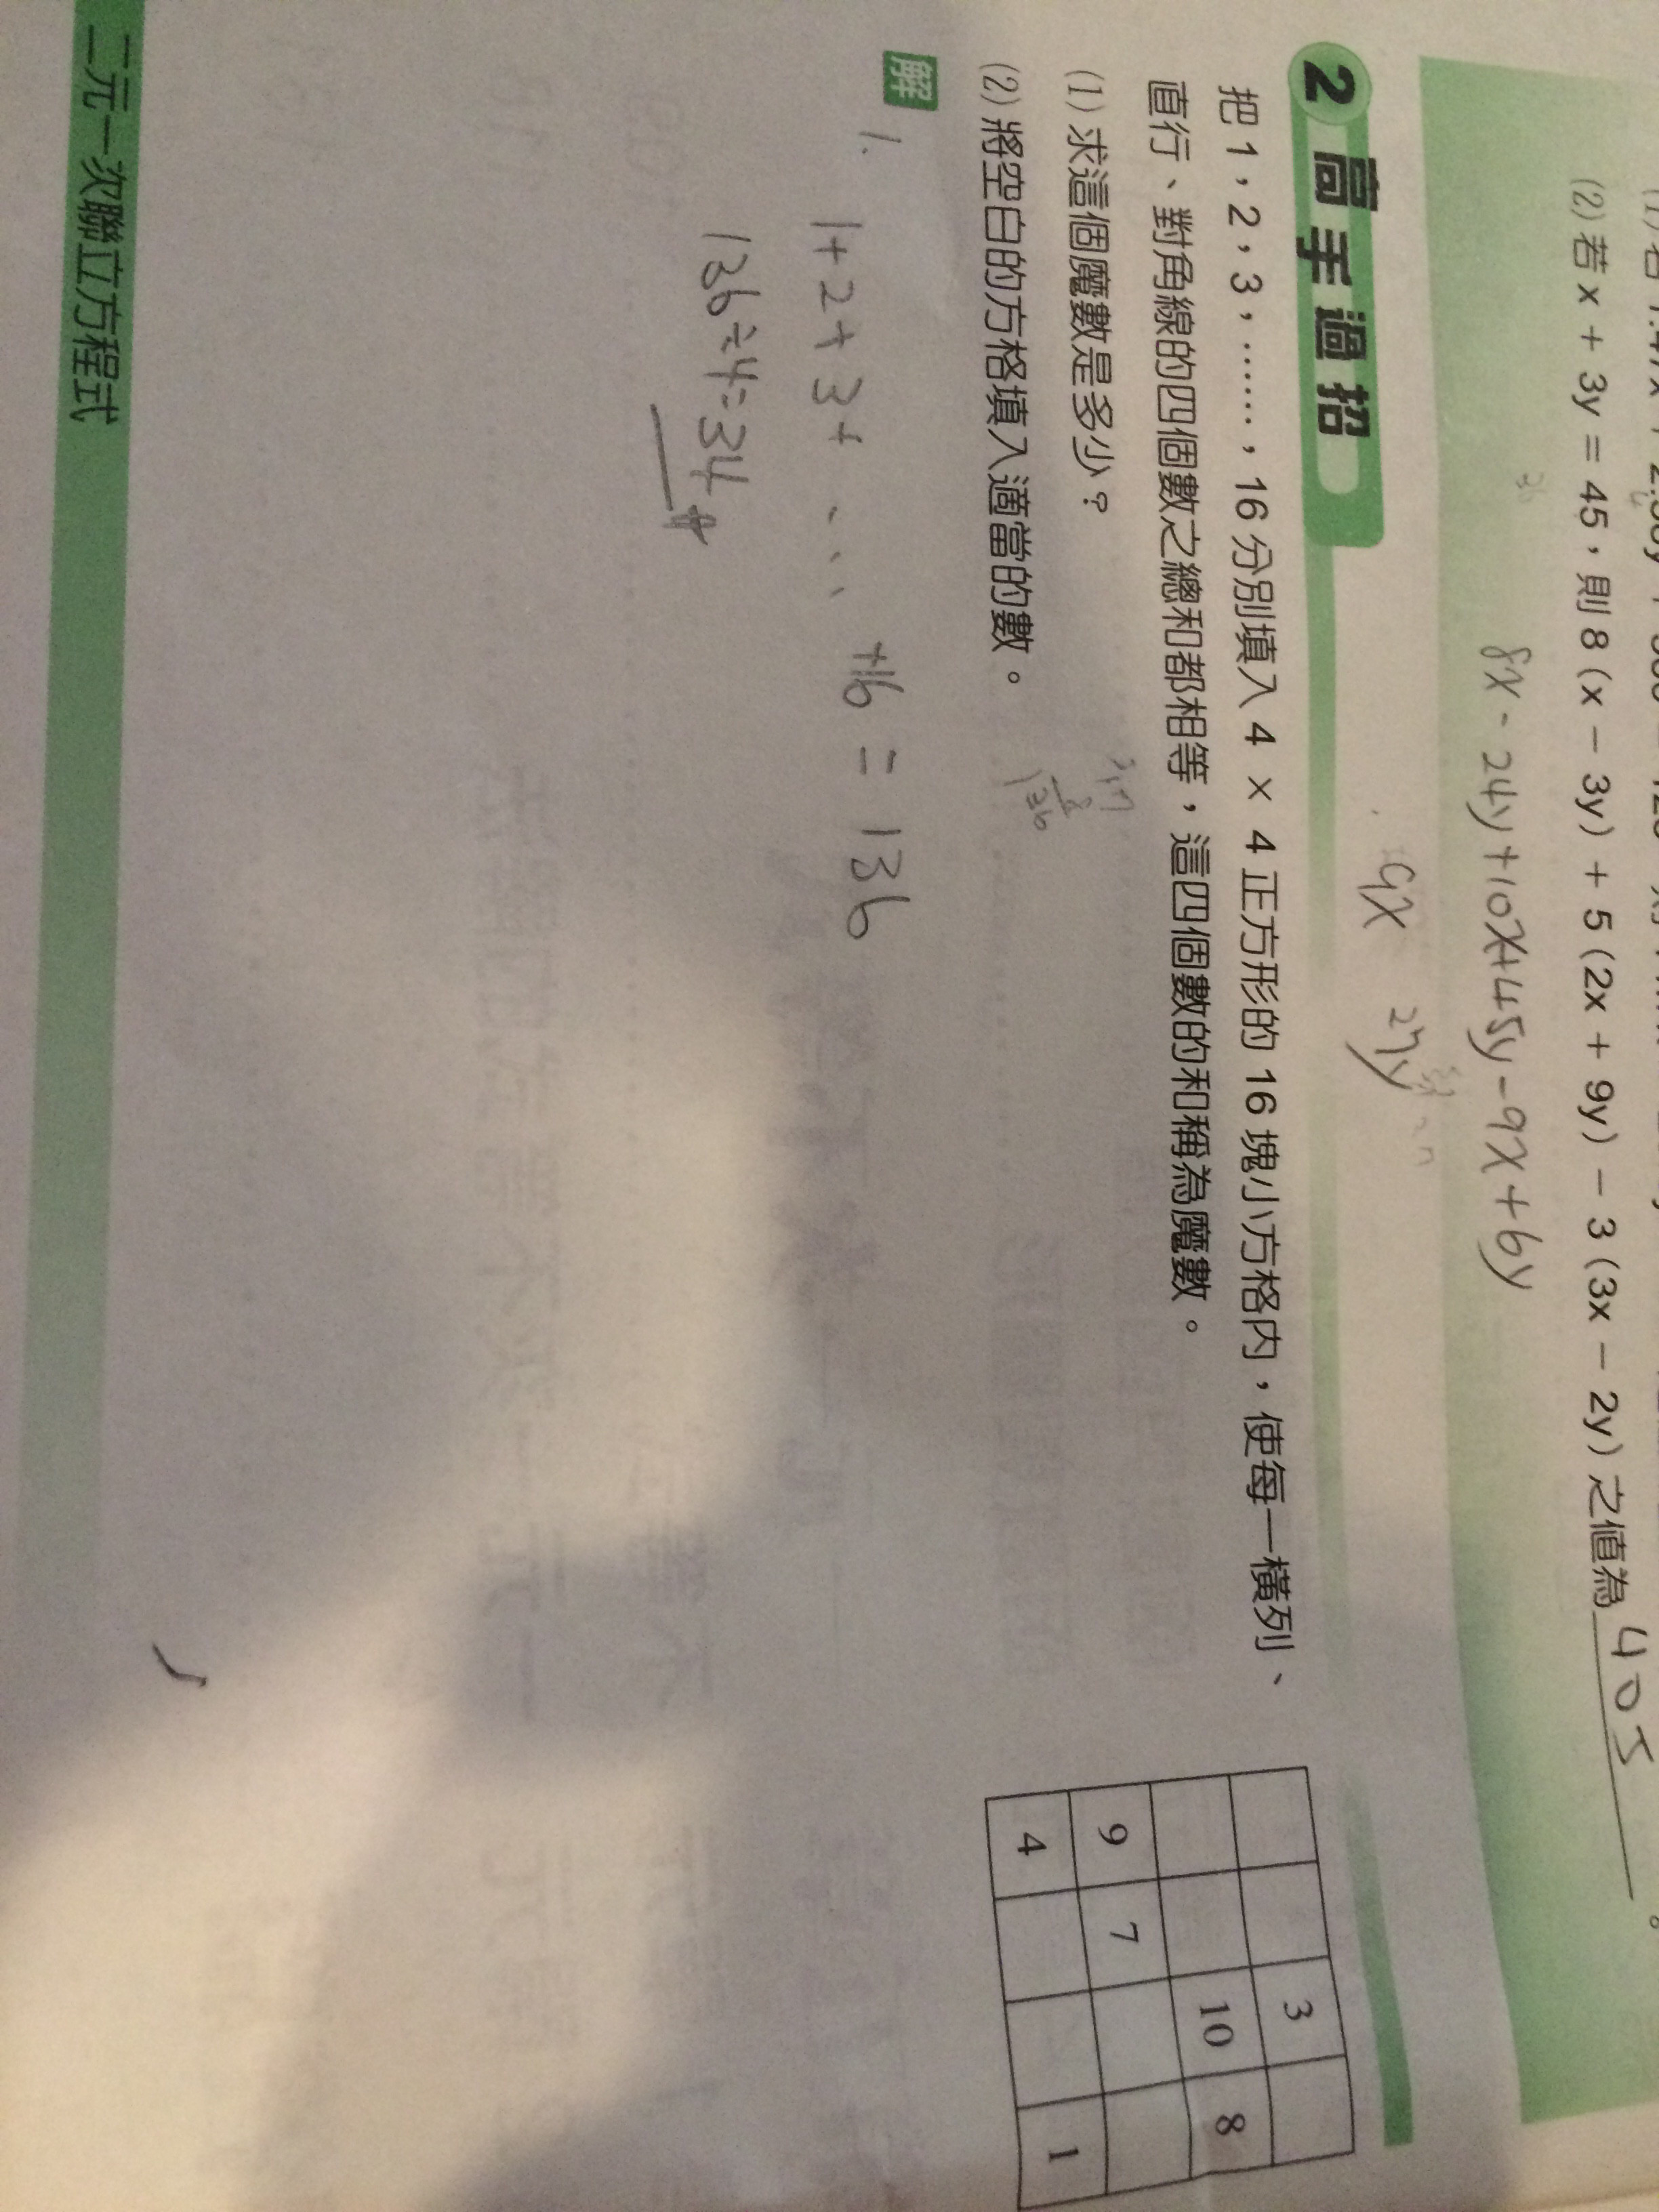 (2) 若 x + 3y = 45，則 8 (x − 3y) + 5 (2x + 9y) − 3 (3x − 2y) 之值為 405 。
8x - 24y + 10x + 45y - 9x + 6y
9x 27y
2 高手過招
把 1，2，3，……，16 分別填入 4 × 4 正方形的 16 塊小方格內，使每一橫列、
直行、對角線的四個數之總和都相等，這四個數的和稱為魔數。
(1) 求這個魔數是多少？
(2) 將空白的方格填入適當的數。
3
10 8
9 7
4 1
解 1.
1+2+3+ ... +16 = 136
136÷4=34
二元一次聯立方程式